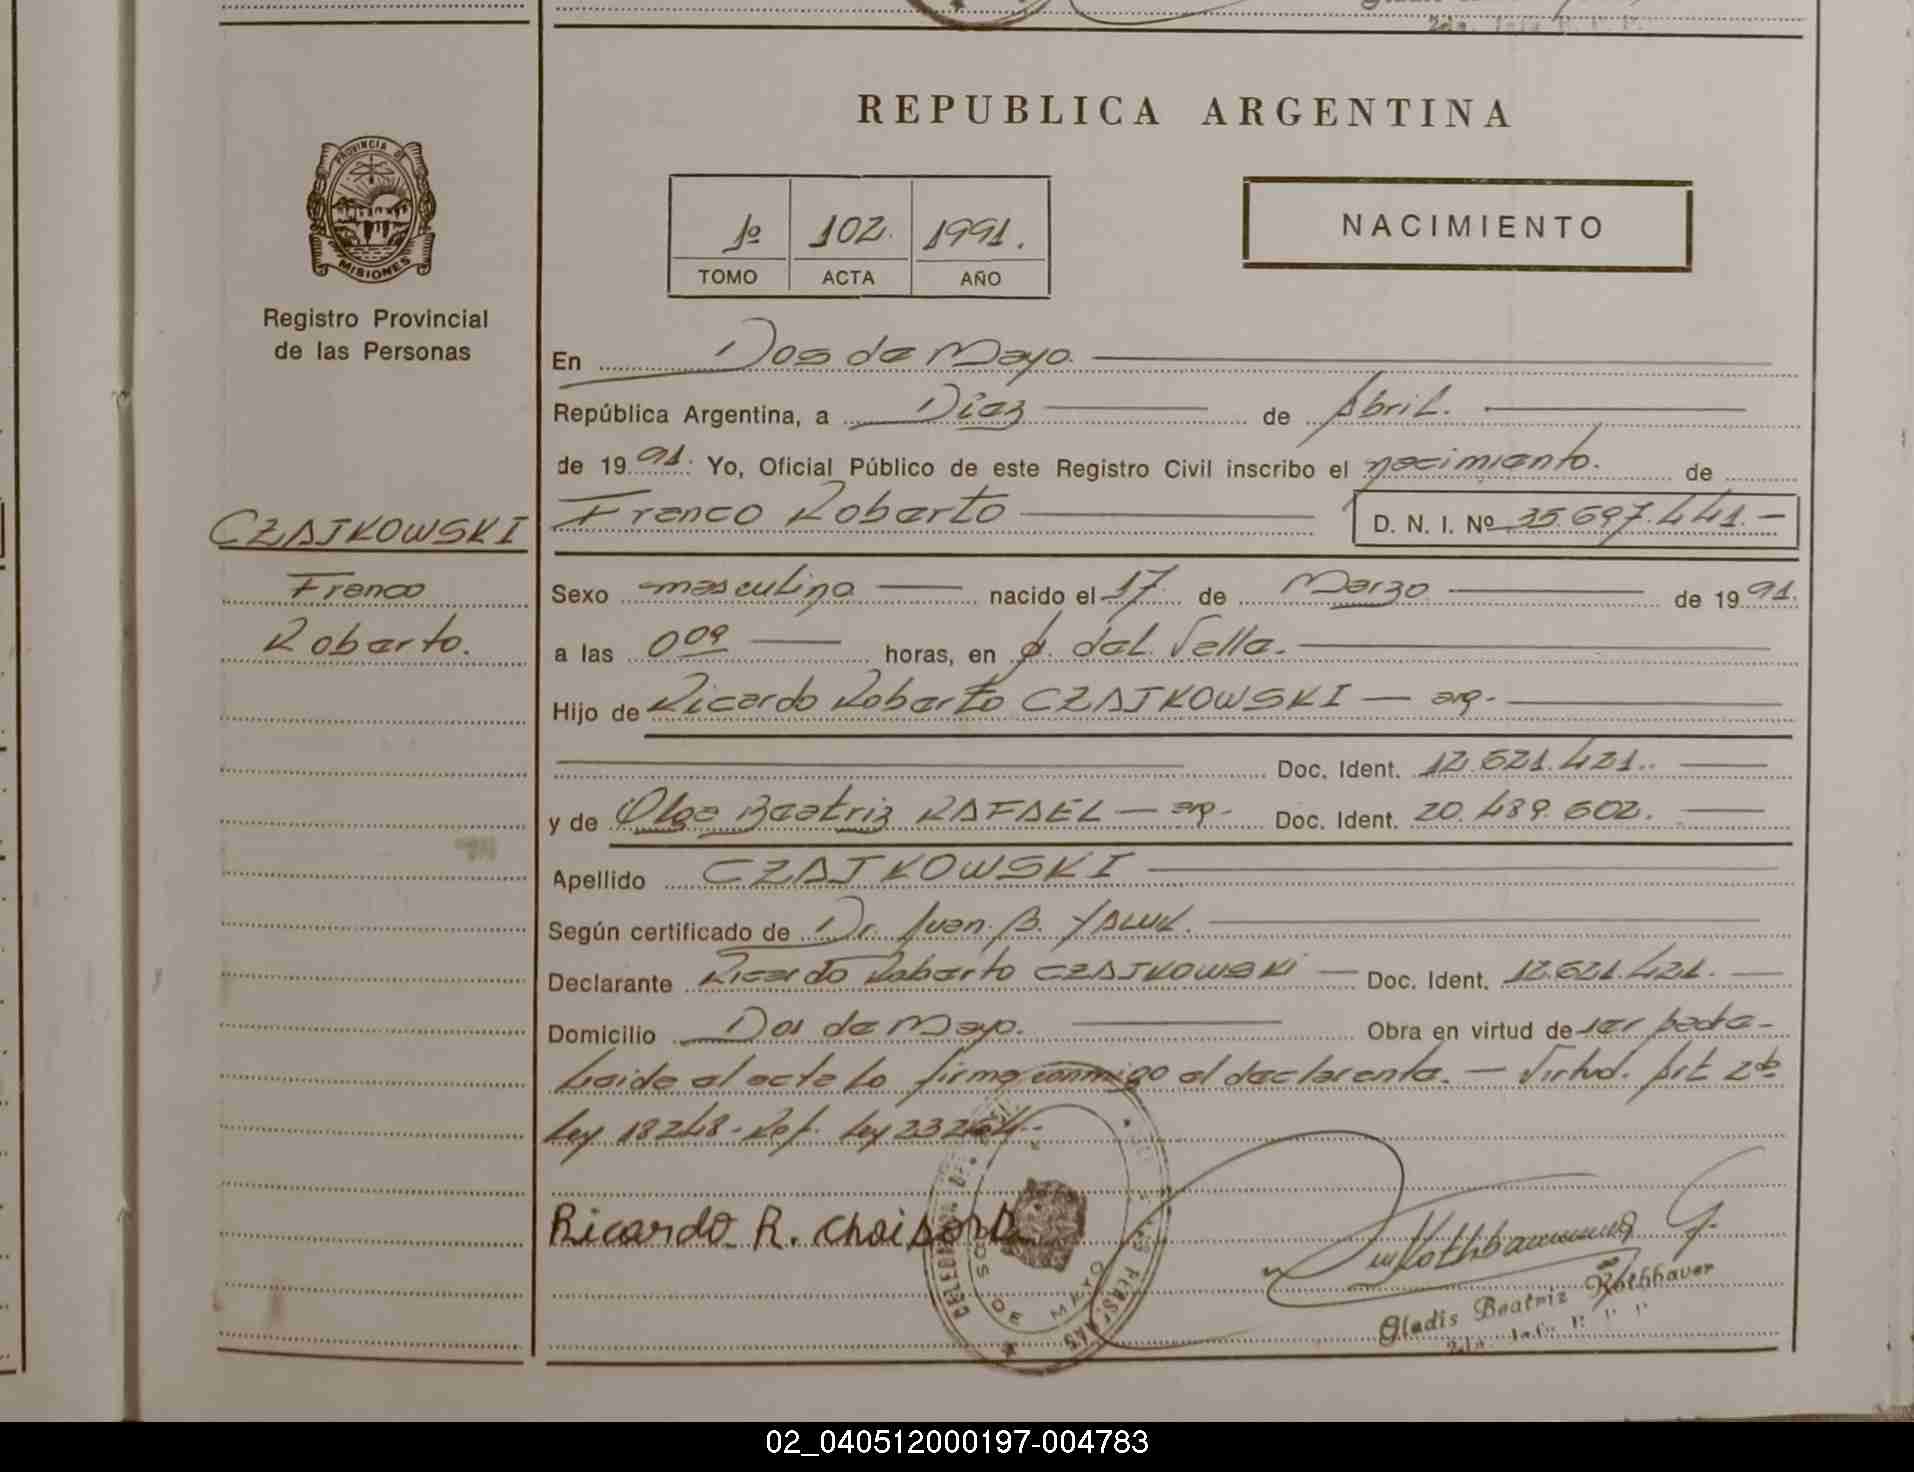 REPUBLICA ARGENTINA
PROVINCIA DE
MISIONES
Registro Provincial
de las Personas
1º 102. 1991.
TOMO ACTA AÑO
NACIMIENTO
En Dos de Mayo.
República Argentina, a Diez de Abril.
de 1991. Yo, Oficial Público de este Registro Civil inscribo el nacimiento. de
CZAJKOWSKI
Franco Roberto D. N. I. Nº 35.697.441.-
Franco
Roberto.
Sexo masculino nacido el 17 de Marzo de 1991.
a las 0 09 horas, en A. del Valle.
Hijo de Ricardo Roberto CZAJKOWSKI — arg.
Doc. Ident. 12.621.421.
y de Olga Beatriz RAFAEL — arg. Doc. Ident. 20.489.602.
Apellido CZAJKOWSKI
Según certificado de Dr. Juan B.
Declarante Ricardo Roberto CZAJKOWSKI — Doc. Ident. 12.621.421.
Domicilio Dos de Mayo. Obra en virtud de ser padre-
Leida el acta la firma conmigo el declarante. — Virtud. Art 2do
Ley 18248- Ref. Ley 23264.-
Ricardo R.
DE MAYO
Gladis Beatriz Rothhaver
2da. Jefa
02_040512000197-004783